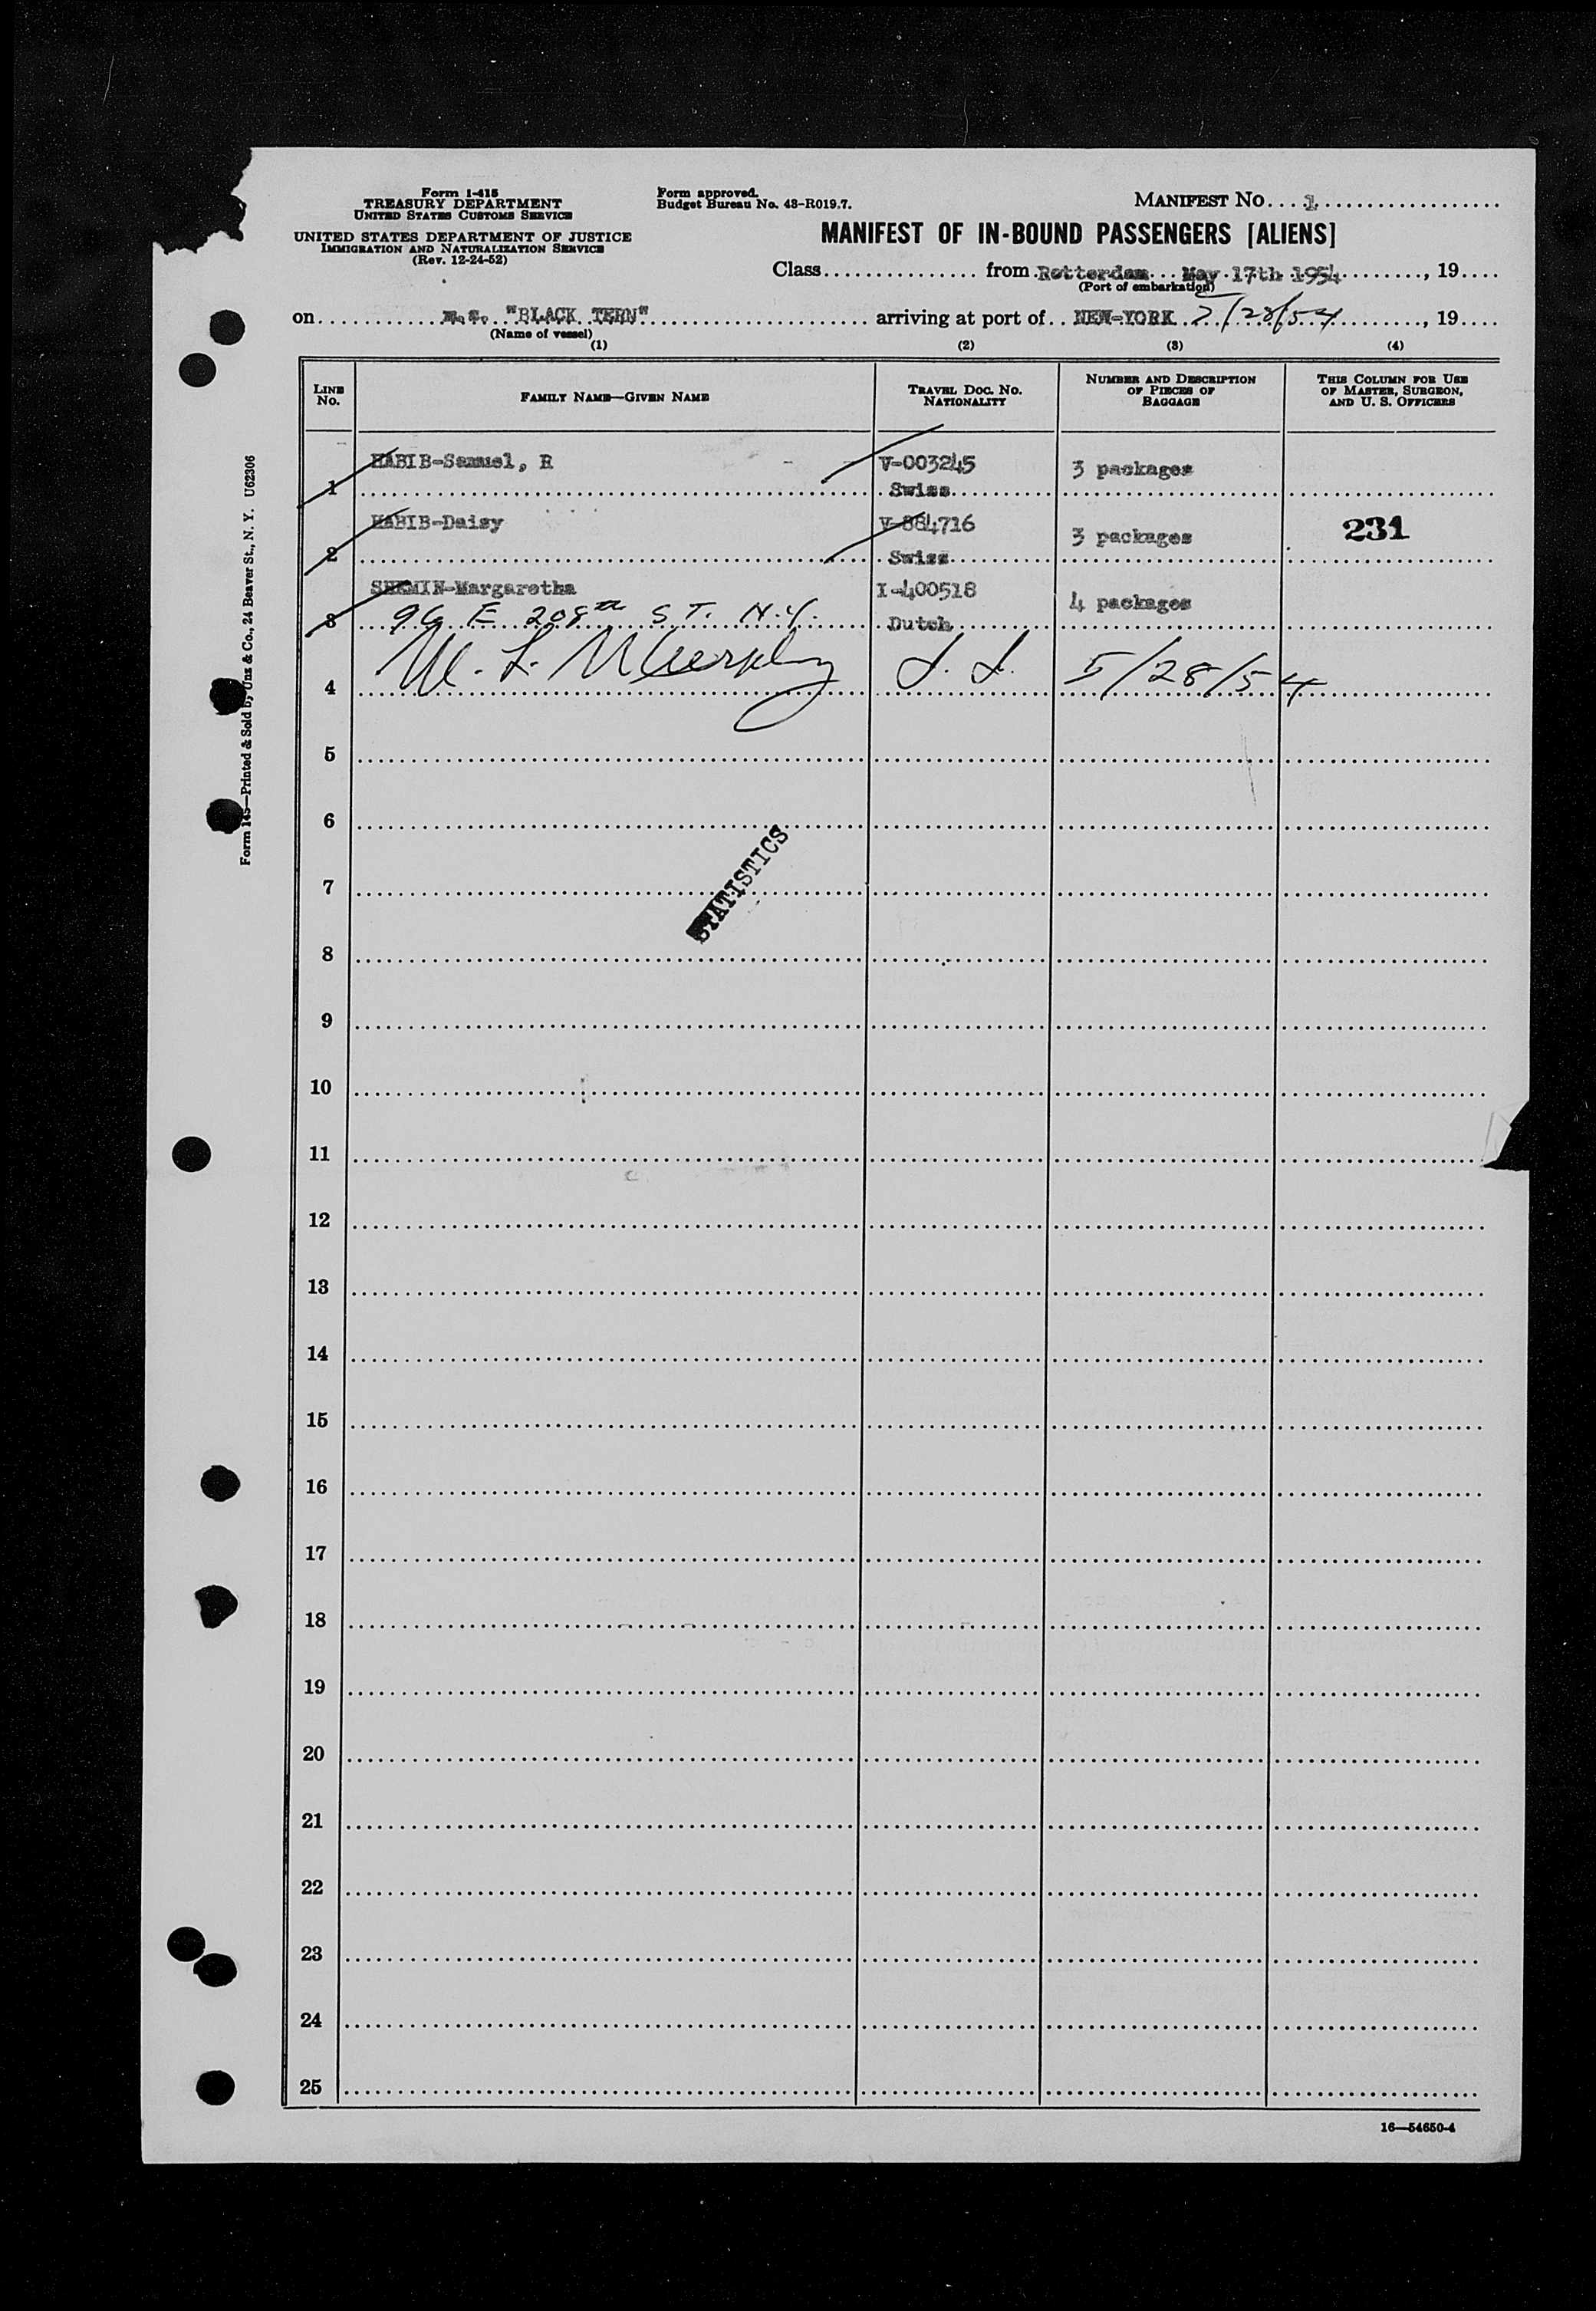 Form I-415
TREASURY DEPARTMENT
UNITED STATES CUSTOMS SERVICE
UNITED STATES DEPARTMENT OF JUSTICE
IMMIGRATION AND NATURALIZATION SERVICE
(Rev. 12-24-52)
Form approved.
Budget Bureau No. 43-R019.7.
MANIFEST NO....1
MANIFEST OF IN-BOUND PASSENGERS [ALIENS]
Class............... from Rotterdam May 17th 1954, 19....
(Port of embarkation)
on m.s. "BLACK TERN" arriving at port of NEW-YORK 5/28/54, 19....
(Name of vessel)
(1) (2) (3) (4)
LINE NO. FAMILY NAME—GIVEN NAME TRAVEL DOC. NO. NATIONALITY NUMBER AND DESCRIPTION OF PIECES OF BAGGAGE THIS COLUMN FOR USE OF MASTER, SURGEON, AND U. S. OFFICERS
HABIB-Samuel, R V-003245 3 packages
1 Swiss
HABIB-Daisy V-884716 3 packages 231
2 Swiss
SHEMIN-Margaretha I-400518 4 packages
3 96 E 208th ST. N.Y. Dutch
4 M. L. Murphy I. I. 5/28/54
5
6
7
STATISTICS
8
9
10
11
12
13
14
15
16
17
18
19
20
21
22
23
24
25
16—54650-4
Form 145—Printed & Sold by Unz & Co., 24 Beaver St., N. Y. U62306